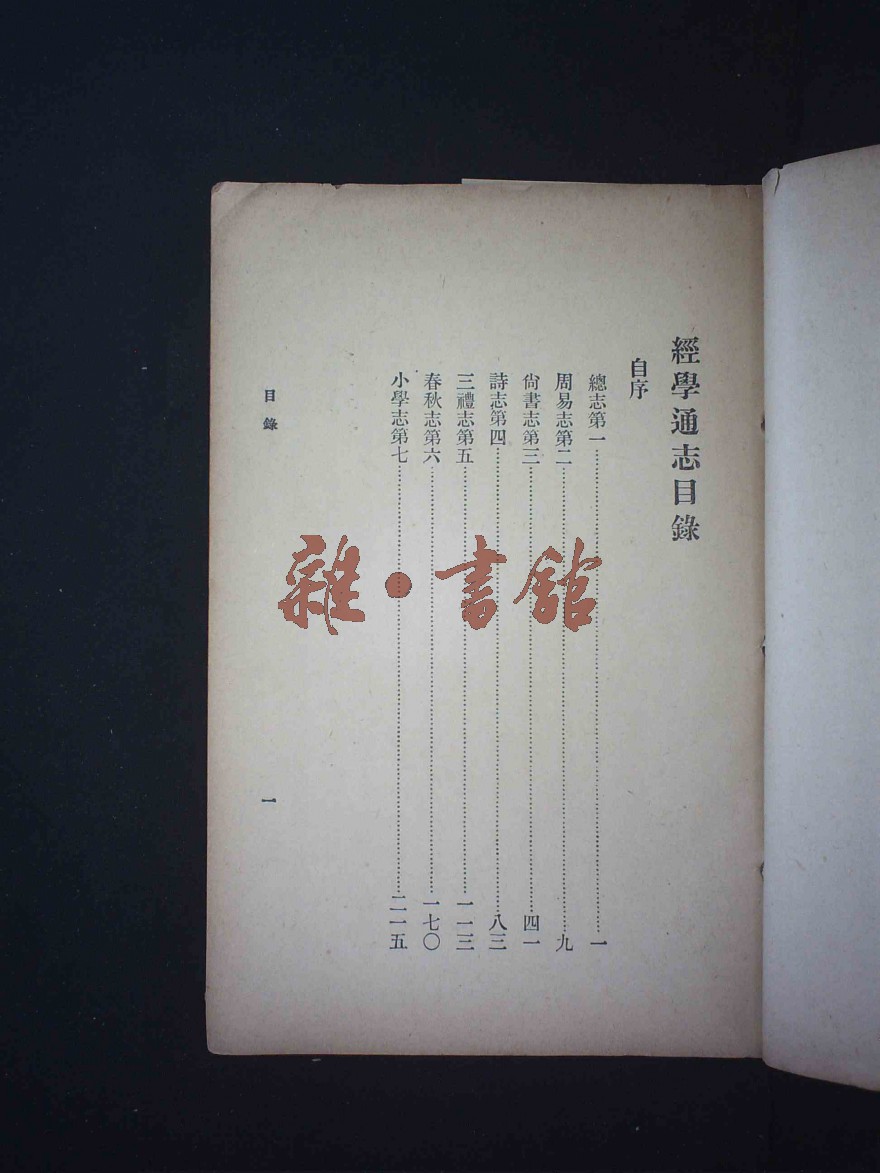 經學通志目錄
自序
總志第一……一
周易志第二……九
尙書志第三……四一
詩志第四……八三
三禮志第五……一一三
春秋志第六……一七〇
小學志第七……二一五
目錄
一
雜·書館